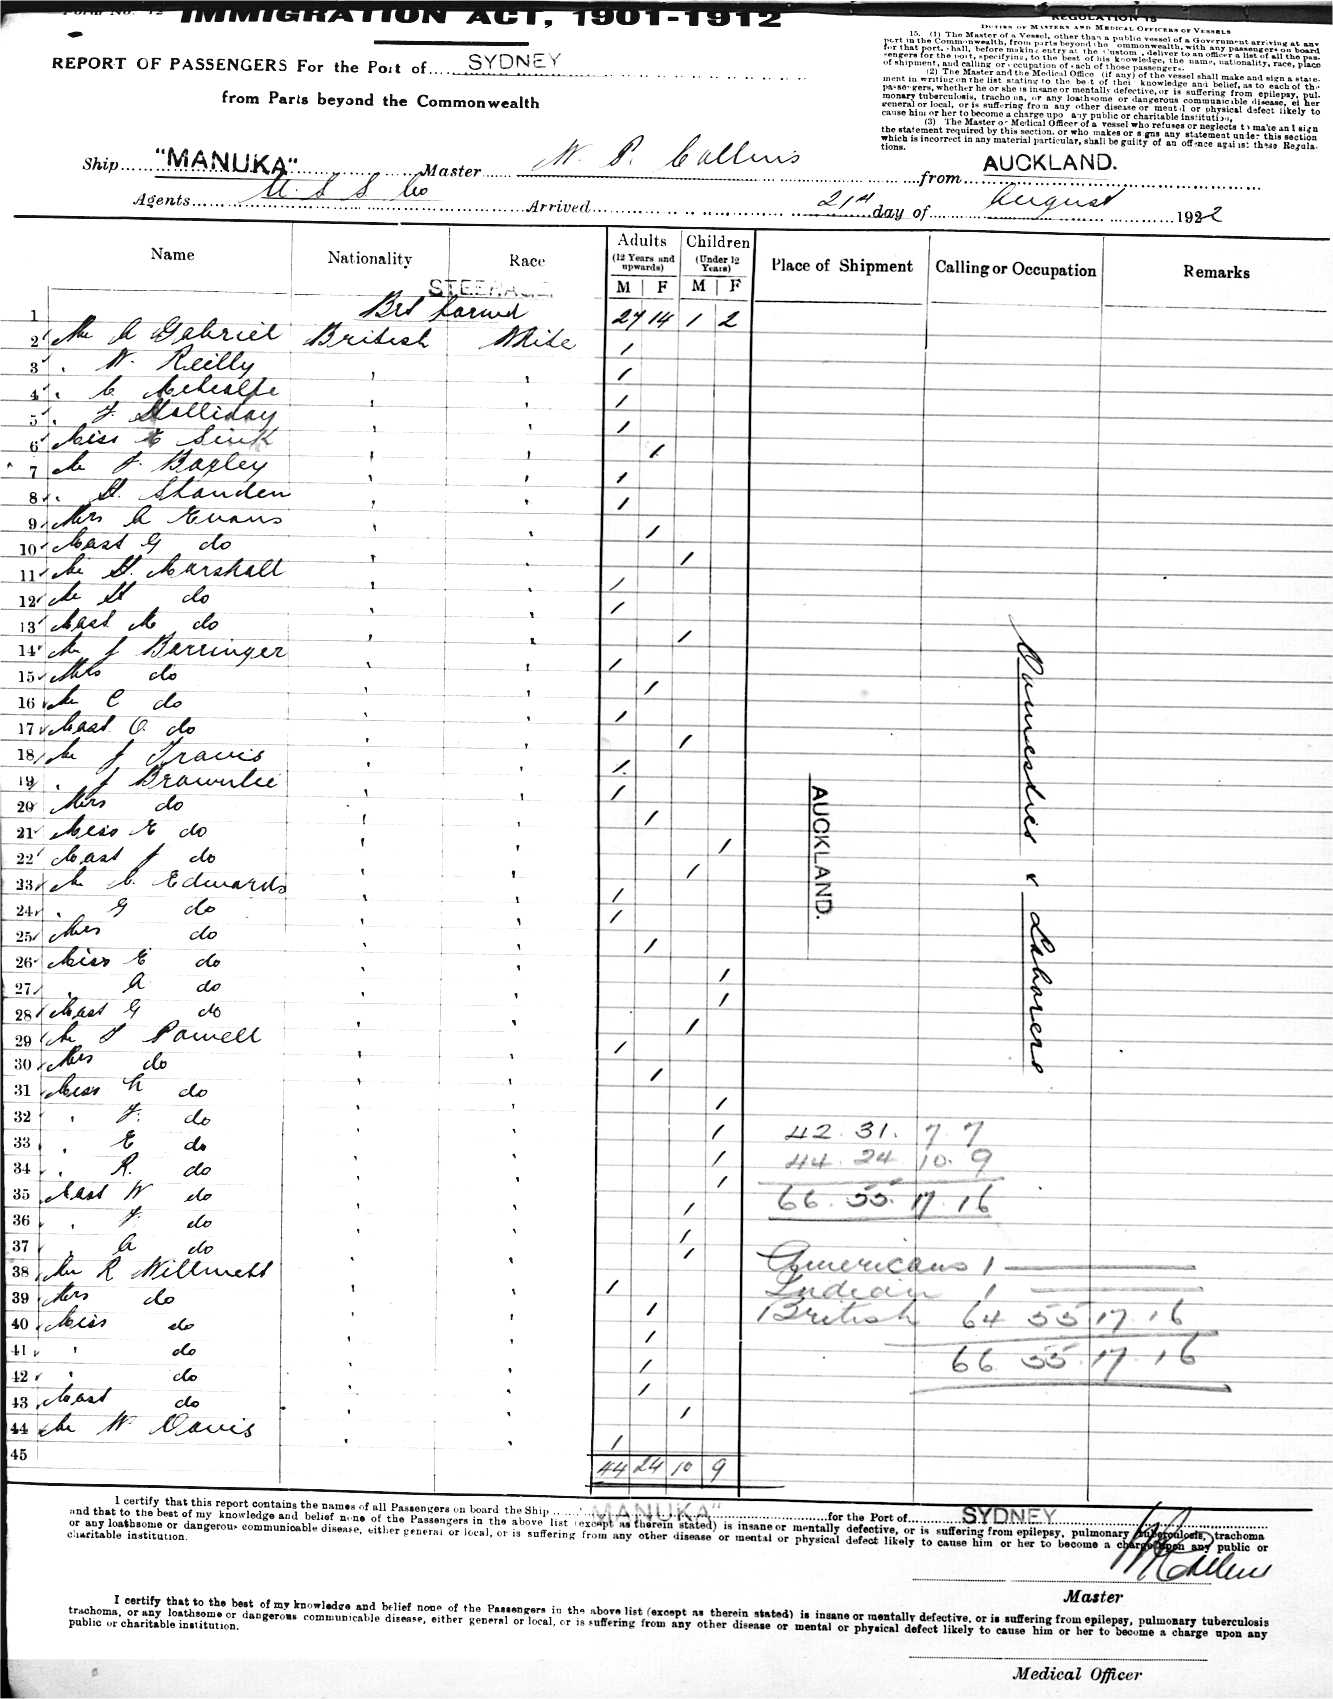 Form No. 42
IMMIGRATION ACT, 1901-1912
REGULATION 15
DUTIES OF MASTERS AND MEDICAL OFFICERS OF VESSELS
15. (1) The Master of a Vessel, other than a public vessel of a Government arriving at any
port in the Commonwealth, from parts beyond the Commonwealth, with any passengers on board
for that port, shall, before making entry at the Custom, deliver to an officer a list of all the pas-
sengers for the port, specifying, to the best of his knowledge, the name, nationality, race, place
of shipment, and calling or occupation of each of those passengers.
(2) The Master and the Medical Office (if any) of the vessel shall make and sign a state-
ment in writing on the list stating to the best of their knowledge and belief, as to each of the
passengers, whether he or she is insane or mentally defective, or is suffering from epilepsy, pul-
monary tuberculosis, trachoma, or any loathsome or dangerous communicable disease, either
general or local, or is suffering from any other disease or mental or physical defect likely to
cause him or her to become a charge upon any public or charitable institution.
(3) The Master or Medical Officer of a vessel who refuses or neglects to make and sign
the statement required by this section, or who makes or signs any statement under this section
which is incorrect in any material particular, shall be guilty of an offence against these Regula-
tions.
REPORT OF PASSENGERS For the Port of SYDNEY
from Parts beyond the Commonwealth
Ship "MANUKA" Master W. P. Collins from AUCKLAND.
Agents U. S S Co Arrived 21st day of August 1922
Name Nationality Race Adults (12 Years and upwards) M F Children (Under 12 Years) M F Place of Shipment Calling or Occupation Remarks
STEERAGE
1 Brt forwd 27 14 1 2
2 Mr A Gabriel British White 1
3 " W. Reilly " " 1
4 " C Metcalfe " " 1
5 " J. Holliday " " 1
6 Miss E Sink " " 1
7 Mr J. Boxley " " 1
8 " H. Standen " " 1
9 Mrs A Evans " " 1
10 Mast G do " " 1
11 Mr H. Marshall " " 1
12 Mr H do " " 1
13 Mast M do " " 1
14 Mr J Barringer " " 1
15 Mrs do " " 1
16 Mr C do " " 1
17 Mast O. do " " 1
18 Mr J Travis " " 1
19 " J Brownlie " " 1
20 Mrs do " " 1
21 Miss E do " " 1
22 Mast J do " " 1
23 Mr C. Edwards " " 1
24 " G do " " 1
25 Mrs do " " 1
26 Miss E do " " 1
27 " A do " " 1
28 Mast G do " " 1
29 Mr J Powell " " 1
30 Mrs do " " 1
31 Miss h do " " 1
32 " F. do " " 1
33 " E do " " 1
34 " R. do " " 1
35 Mast W do " " 1
36 " F. do " " 1
37 " A do " " 1
38 Mr R Willmett " " 1
39 Mrs do " " 1
40 Miss do " " 1
41 " do " " 1
42 " do " " 1
43 Mast do " " 1
44 Mr W. Davis " " 1
45 44 24 10 9
AUCKLAND.
Domestics & Laborers
42. 31. 7. 7
44. 24 10. 9
66. 55. 17. 16
Americans 1
Indian 1
British 64 55 17. 16
66 55. 17. 16
I certify that this report contains the names of all Passengers on board the Ship "MANUKA" for the Port of SYDNEY
and that to the best of my knowledge and belief none of the Passengers in the above list (except as therein stated) is insane or mentally defective, or is suffering from epilepsy, pulmonary tuberculosis, trachoma
or any loathsome or dangerous communicable disease, either general or local, or is suffering from any other disease or mental or physical defect likely to cause him or her to become a charge upon any public or
charitable institution.
W P Collins
Master
I certify that to the best of my knowledge and belief none of the Passengers in the above list (except as therein stated) is insane or mentally defective, or is suffering from epilepsy, pulmonary tuberculosis
trachoma, or any loathsome or dangerous communicable disease, either general or local, or is suffering from any other disease or mental or physical defect likely to cause him or her to become a charge upon any
public or charitable institution.
Medical Officer